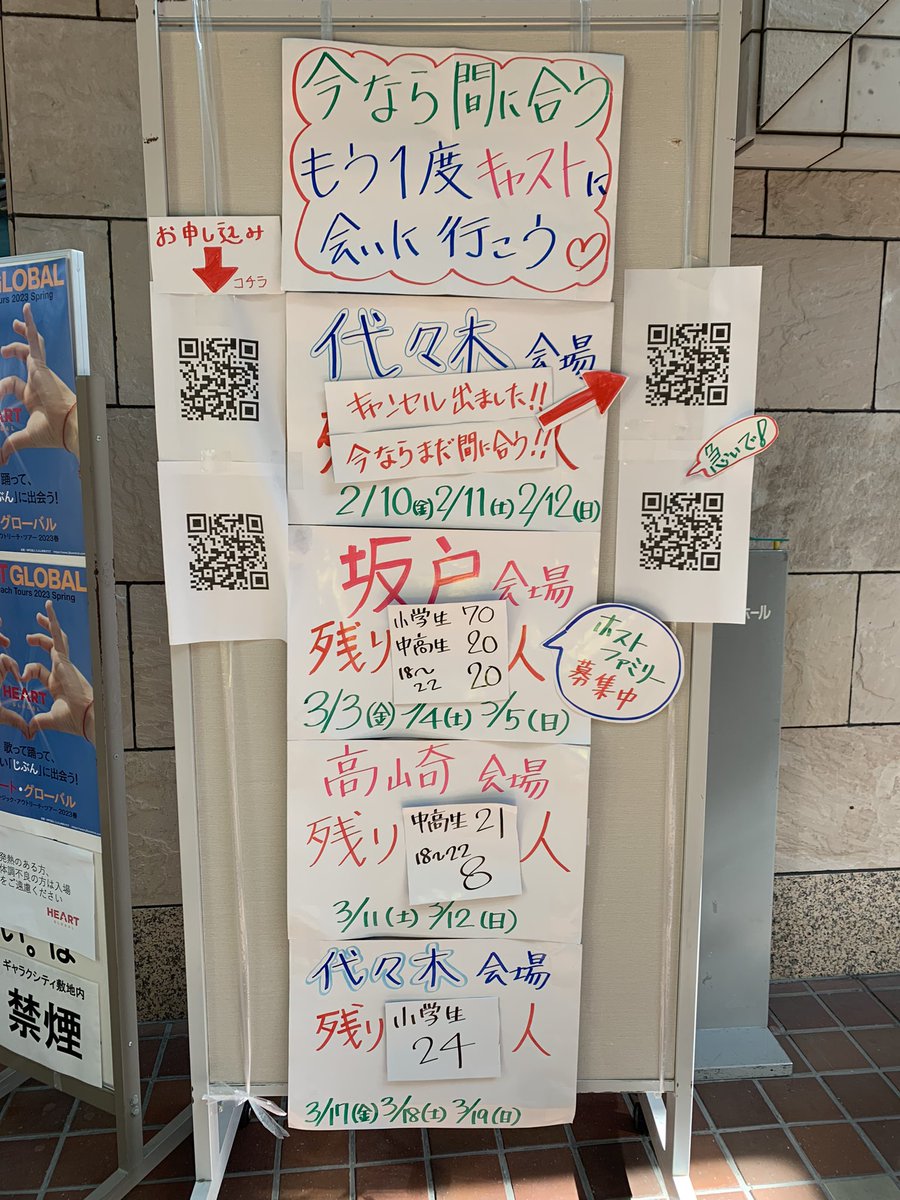 今なら間に合う
もう1度キャストに
会いに行こう♡
お申し込み
コチラ
代々木 会場
キャンセル出ました!!
今ならまだ間に合う!!
急いで!
2/10(金) 2/11(土) 2/12(日)
坂戸 会場
残り 人
小学生 70
中高生 20
18〜22 20
3/3(金) 3/4(土) 3/5(日)
ホスト
ファミリー
募集中
高崎 会場
残り 人
中高生 21
18〜22 8
3/11(土) 3/12(日)
代々木 会場
残り 人
小学生
24
3/17(金) 3/18(土) 3/19(日)
GLOBAL
Tours 2023 Spring
踊って、
じぶん」に出会う!
グローバル
GLOBAL
ach Tours 2023 Spring
HEART
歌って踊って、
い「じぶん」に出会う!
ート・グローバル
発熱のある方、
体調不良の方は入場
をご遠慮ください
HEART
GLOBAL
ギャラクシティ敷地内
禁煙
ホール